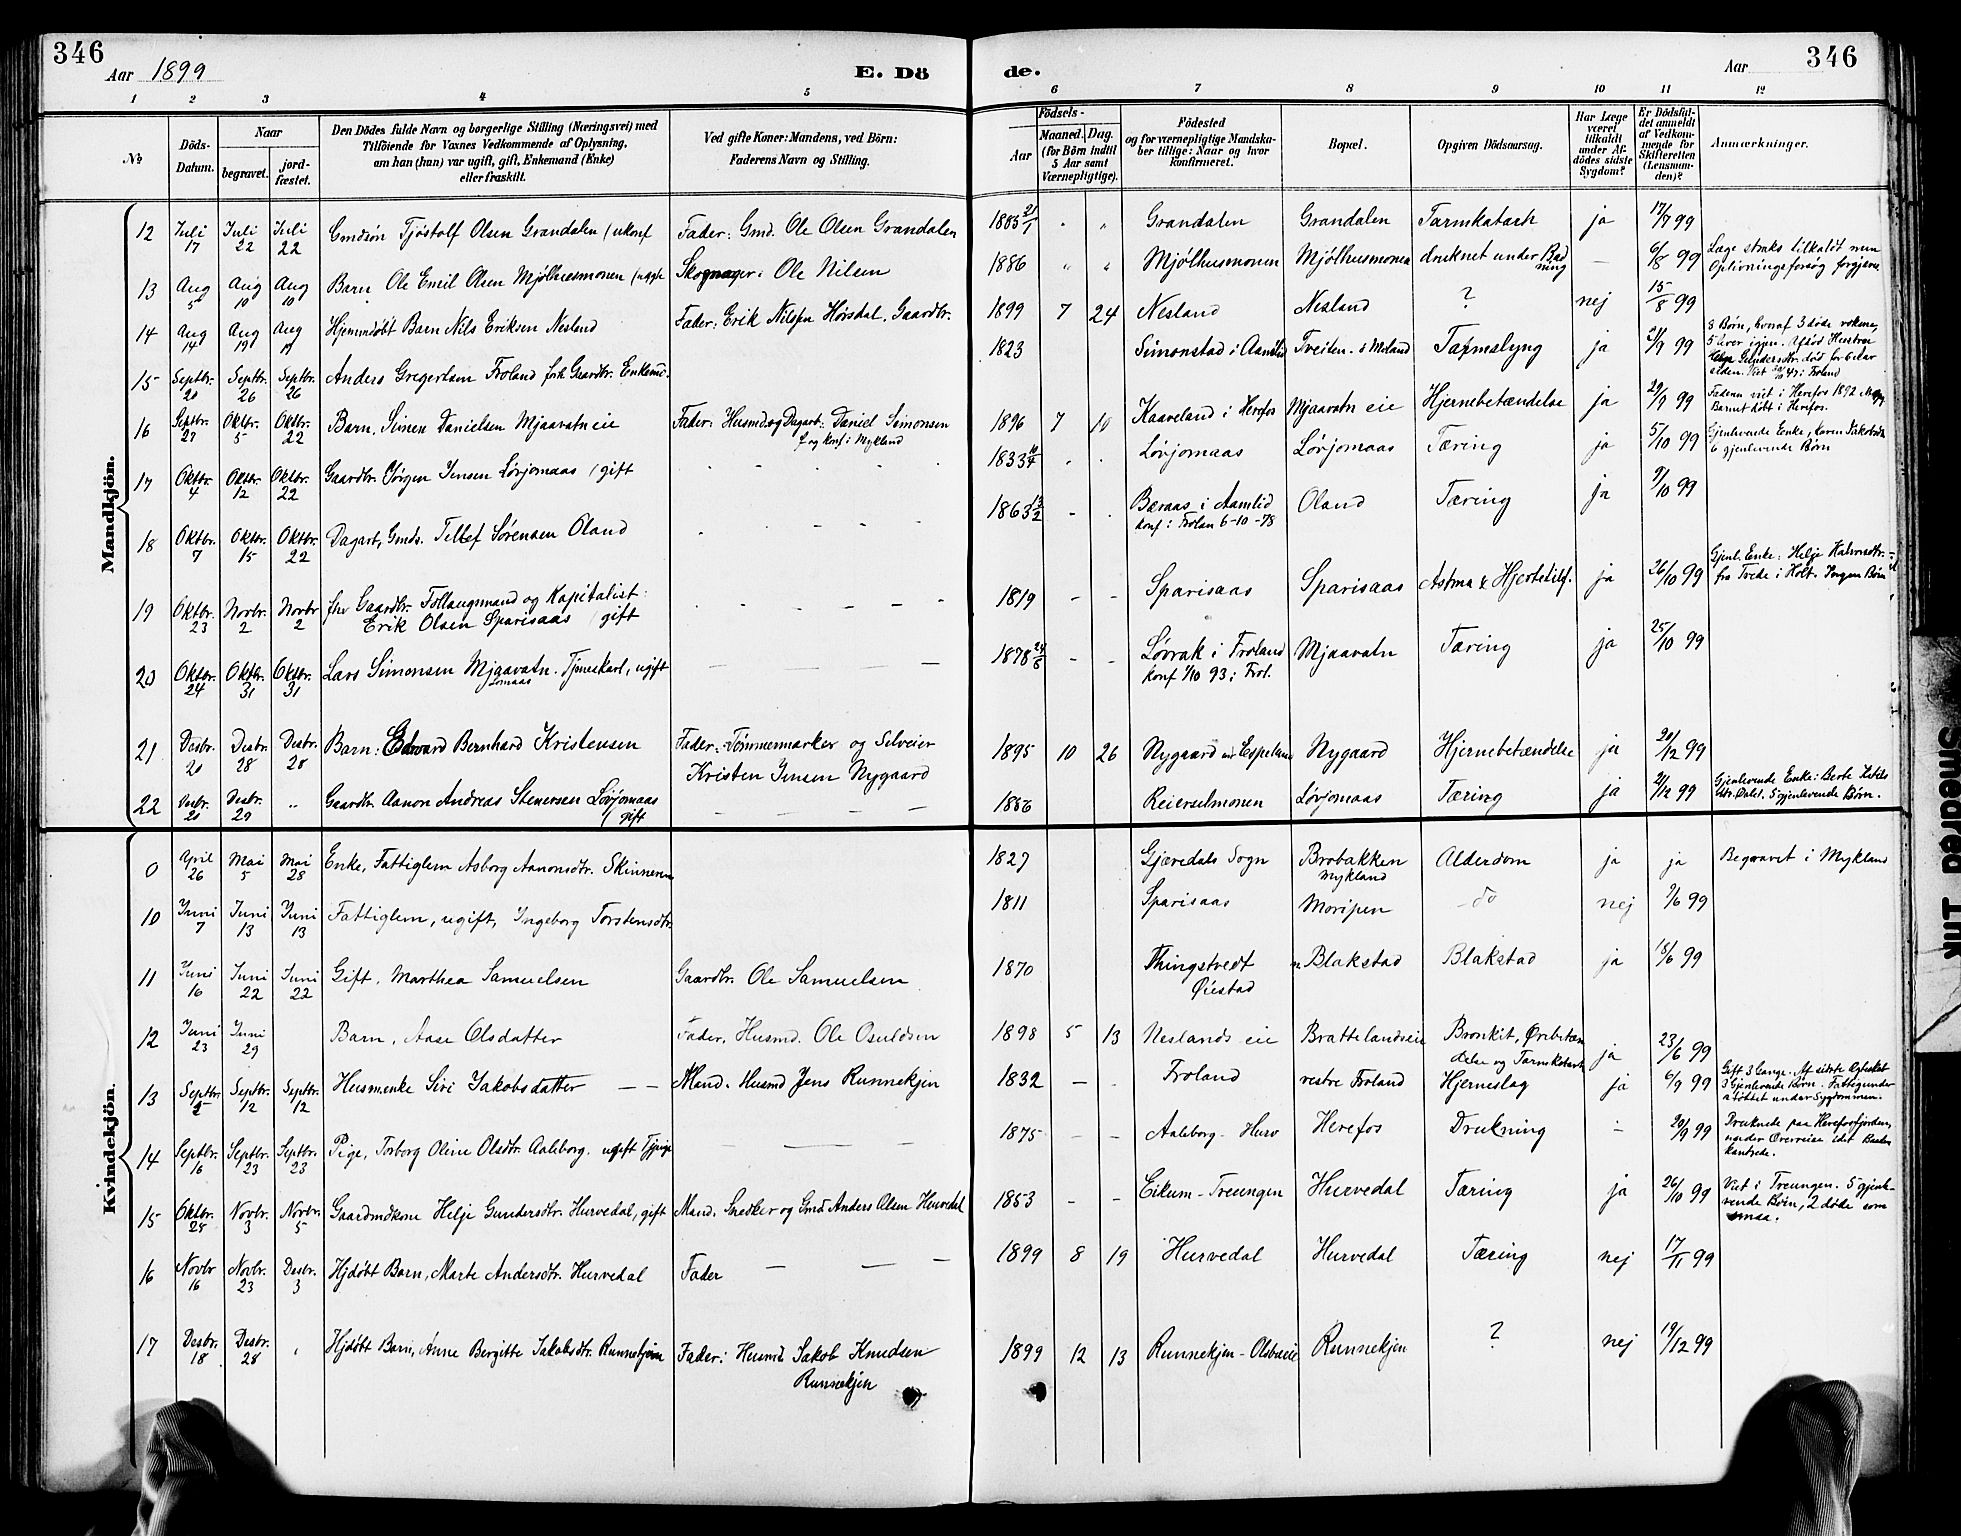 346
Aar 1899
E. Dö
de.
Aar
346
1 2 3 4 5 6 7 8 9 10 11 12
№
Döds-Datum.
Naar
begravet.
jord-fæstet.
Den Dödes fulde Navn og borgerlige Stilling (Næringsvei) med
Tilföiende for Voxnes Vedkommende af Oplysning,
om han (hun) var ugift, gift, Enkemand (Enke)
eller fraskilt.
Ved gifte Koner: Mandens, ved Börn:
Faderens Navn og Stilling.
Födsels-
Aar
Maaned. Dag.
(for Börn indtil
5 Aar samt
Værnepligtige).
Födested
og for værnepligtige Mandska-
ber tillige: Naar og hvor
konfirmeret.
Bopæl.
Opgiven Dödsaarsag.
Har Læge
været
tilkaldt
under Af-
dödes sidste
Sygdom?
Er Dödsfal-
det anmeldt
af Vedkom-
mende for
Skifteretten
(Lensman-
den)?
Anmærkninger.
Mandkjön.
12 Juli 17 Juli 22 Juli 22 Gmdsøn Tjøstolf Olsen Grandalen (ukonf Fader: Gmd. Ole Olsen Grandalen 1885 21/1 " " Grandalen Grandalen Tarmkatarh ja 17/7 99
13 Aug 5 Aug 10 Aug 10 Barn Ole Emil Olsen Mjølhusmonen Ole Nilsen 1886 " " Mjølhusmonen Mjølhusmonen druknet under Badning — 6/8 99 Læge straks tilkaldt men
Oplivningsforsøg forgjæves
14 Aug 14 Aug 19 Aug 19 Hjemmedøbt Barn Nils Eriksen Nesland Fader: Erik Nilsen Hørsdal, Gaardbr. 1899 7 24 Nesland Nesland ? nej 15/8 99
15 Septbr. 20 Septbr. 26 Septbr. 26 Anders Gregertsen Froland forh. Gaardbr. Enkemd. 1823 Simonstad i Aamlid Tveiten Tarmslyng ja 21/9 99 8 Børn, hvoraf 3 døde voksne,
5 lever igjen. Hustru
Gundersdtr. død for 6 Aar
siden. Viet 47 i Froland
16 Septbr. 27 Oktbr. 5 Oktbr. 22 Barn. Simen Danielsen Mjaavatn eie Fader: Husmd. og Dagarb. Daniel Simonsen
f. og konf. i Mykland 1896 7 10 Kaaveland i Herefos Mjaavatn eie Hjernebetændelse ja 29/9 99 Faderen viet i Herefos 1892
Barnet døbt i Herefos.
17 Oktbr. 4 Oktbr. 12 Oktbr. 22 Gaardbr. Jørgen Jensen Løvjomaas (gift 1833 Løvjomaas Løvjomaas Tæring ja 5/10 99 Gjenlevende Enke, Karen Jakobsdtr.
6 gjenlevende Børn
18 Oktbr. 7 Oktbr. 15 Oktbr. 22 Dagarb. Gmds. Tellef Sørensen Oland 1863 13/2 - Beraas i Aamlid
konf. i Frolan 6-10-78 Oland Tæring ja 9/10 99
19 Oktbr. 23 Novbr. 2 Novbr 2 fhv Gaardbr. Tollaugsmand og Kapitalist:
Erik Olsen Sparisaas (gift 1819 - - Sparisaas Sparisaas Astma & Hjertelidf. ja 26/10 99 Gjenl. Enke: Helje Halvorsdtr.
fra Tvede i Holt. Ingen Børn
20 Oktbr. 24 Oktbr. 31 Oktbr. 31 Lars Simonsen Mjaavatn. Tjenestkarl, ugift
Lomaas 1878 24/8 - - Løvrak i Froland
konf 1/10 93 i Frol. Mjaavatn Tæring ja 25/10 99
21 Desbr. 20 Desbr. 28 Desbr. 28 Barn: Edvard Bernhard Kristensen Fader: Tømmermarker og Selveier
Kristen Jensen Nygaard 1895 10 26 Nygaard Nygaard Hjernebetændelse ja 20/12 99
22 Desbr. 21 Desbr. 29 " Gaardbr Aanon Andreas Stenersen Løvjomaas
(gift 1856 Reierselmonen Løvjomaas Tæring ja 21/12 99 Gjenlevende Enke: Berte Ketils
dtr. 5 gjenlevende Børn.
Kvindekjön.
0 April 26 Mai 5 Mai 28 Enke, Fattiglem Asborg Aanonsdtr. Skinneren 1827 Gjævedals Sogn Brobakken
Mykland Alderdom ja ja Begravet i Mykland
10 Juni 7 Juni 13 Juni 13 Fattiglem, ugift, Ingeborg Torstensdtr. 1811 Sparisaas Moripen do nej 7/6 99
11 Juni 16 Juni 22 Juni 22 Gift. Marthea Samuelsen Gaardbr. Ole Samuelsen 1870 Thingstvedt
Øiestad Blakstad Blakstad ja 18/6 99
12 Juni 23 Juni 29 Barn, Aase Olsdatter Fader, Husmd. Ole Osuldsen 1898 5 13 Neslands eie Brattelandseie Bronkit, Ørebetæn
delse og Tarmkatarh ja 23/6 99
13 Septbr. 5 Septbr. 12 Septbr. 12 Husmenke Siri Jakobsdatter — — Mand. Husmd Jens Runnekjen 1832 — Froland vestre Froland Hjerneslag ja 6/9 99 Gift 3 Gange. Af sidste Ægteskab
3 Gjenlevende Børn. Fattigunder
støttet under Sygdommen.
14 Septbr. 16 Septbr. 23 Septbr. 23 Pige, Torborg Oline Olsdtr. Aalsborg. ugift Tjpige 1875 — — Aalsborg - Herefos Drukning - 20/9 99 Druknede paa Herefosfjorden
under Overreise idet Baaden
kantrede.
15 Oktbr. 28 Novbr. 3 Novbr. 5 Gaardmdkone Helje Gundersdtr. Hurvedal, gift Mand. Snedker og Gmd Anders Olsen Hurvedal 1853 — — Eikum - Treungen Hurvedal Tæring ja 26/10 99 Viet i Treungen. 5 gjenle-
vende Børn, 2 døde som
smaa.
16 Novbr 16 Novbr. 23 Desbr. 3 Hjdøbt Barn, Marte Andersdtr. Hurvedal Fader — — — 1899 8 19 Hurvedal Hurvedal Tæring nej 17/11 99
17 Desbr. 18 Desbr. 28 Hjdøbt Barn, Anne Bergitte Jakobsdtr. Runnekjen Fader: Husmd Jakob Knudsen
Runnekjen 1899 12 13 Runnekjen - Runnekjen ? nej 19/12 99